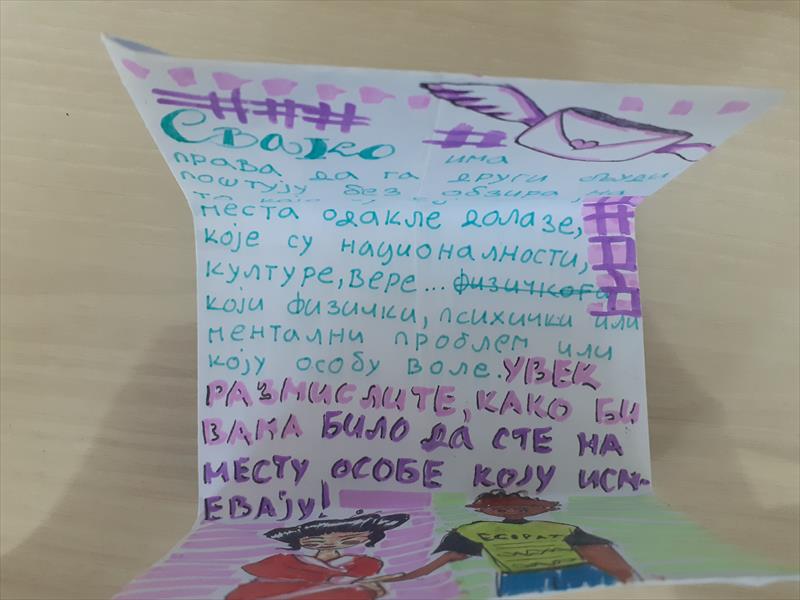 Свако има
права да га други људи
поштују без обзира на
места одакле долазе,
које су националности,
културе, вере... физичког
који физички, психички или
ментални проблем или
коју особу воле. УВЕК
РАЗМИСЛИТЕ, КАКО БИ
ВАМА БИЛО ДА СТЕ НА
МЕСТУ ОСОБЕ КОЈУ ИСМ-
ЕВАЈУ!